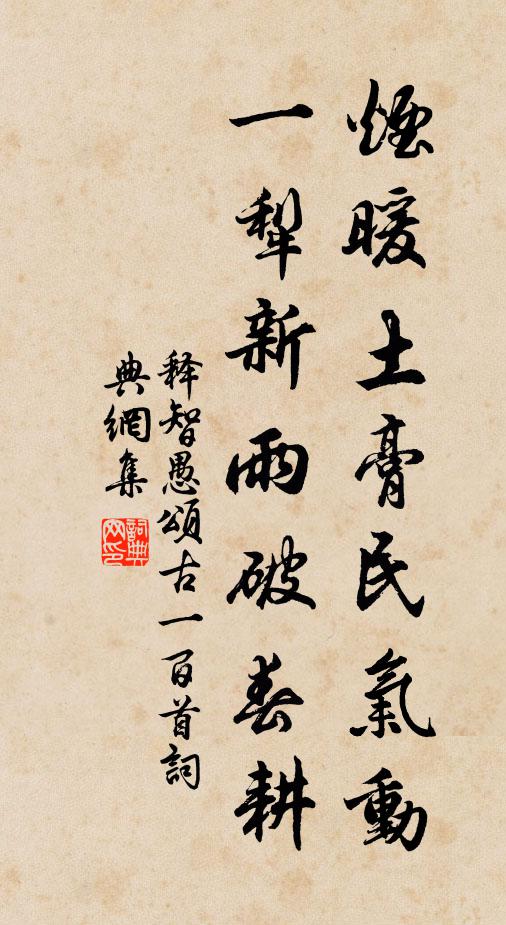 煙暖土膏民氣動
一犁新雨破春耕
释智愚頌古一百首詞
典網集
詞典網印